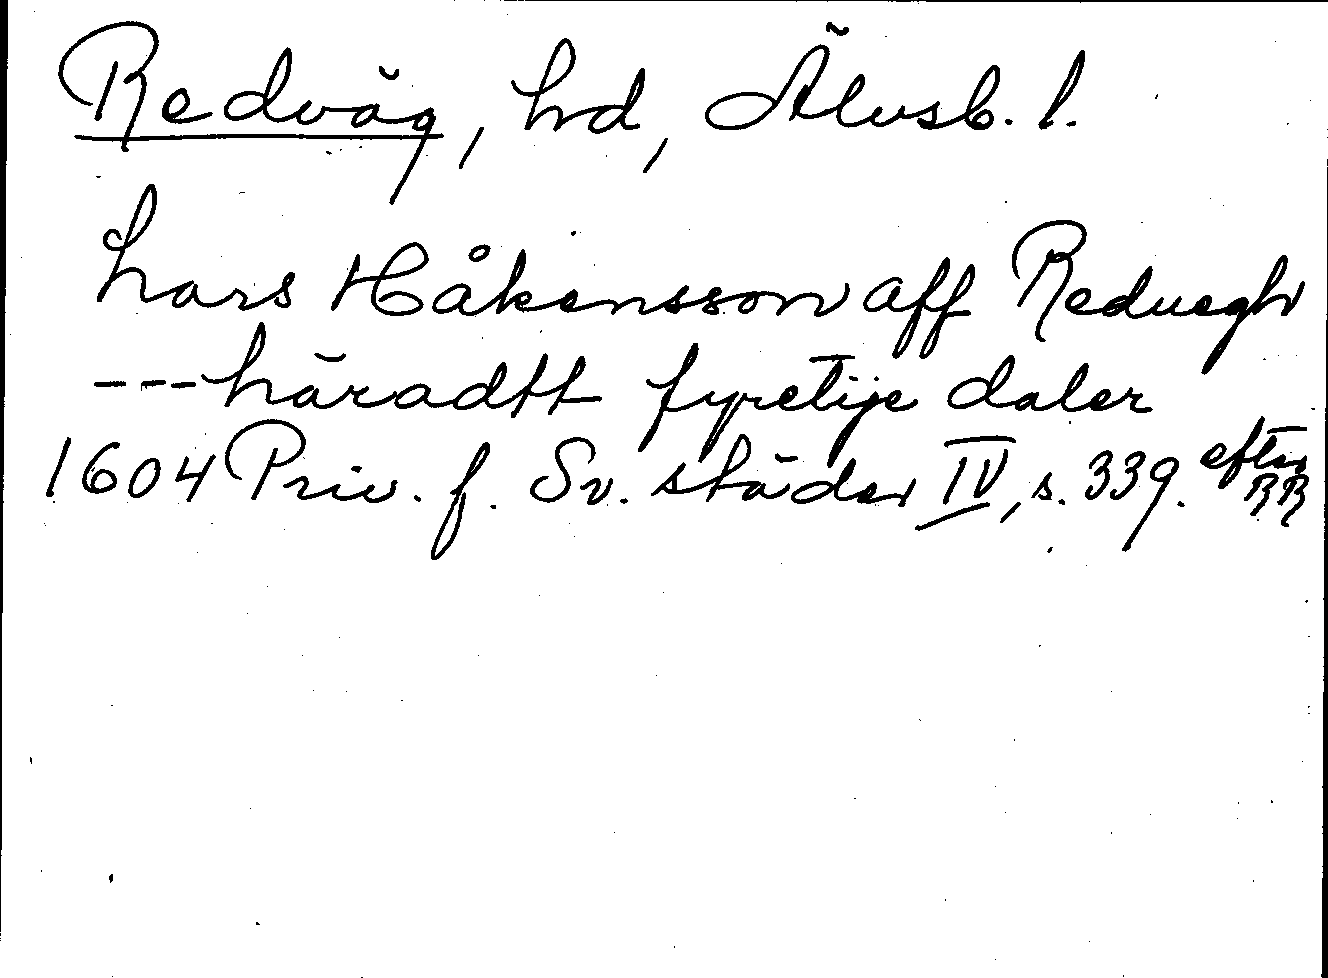 Redväg, hd, Älvsb. l.
Lars Håkensson aff Reduegh
---häradtt fyretije daler
1604 Priv. f. Sv. städer IV, s. 339. efter RR